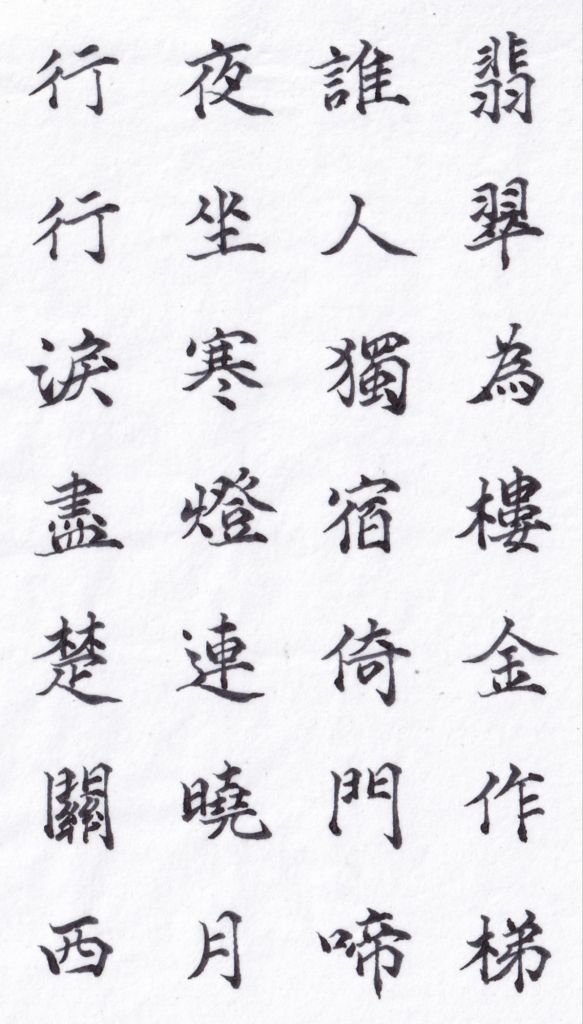 翡翠為樓金作梯
誰人獨宿倚門啼
夜坐寒燈連曉月
行行淚盡楚關西